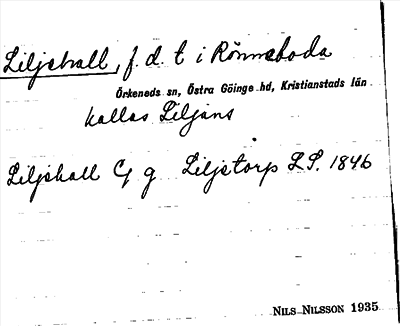 Liljehall, f. d. t. i Rönneboda
Örkeneds sn, Östra Göinge hd, Kristianstads län
kallas Liljans
Liljehall Cg g Liljetorp L.S. 1846
NILS NILSSON 1935